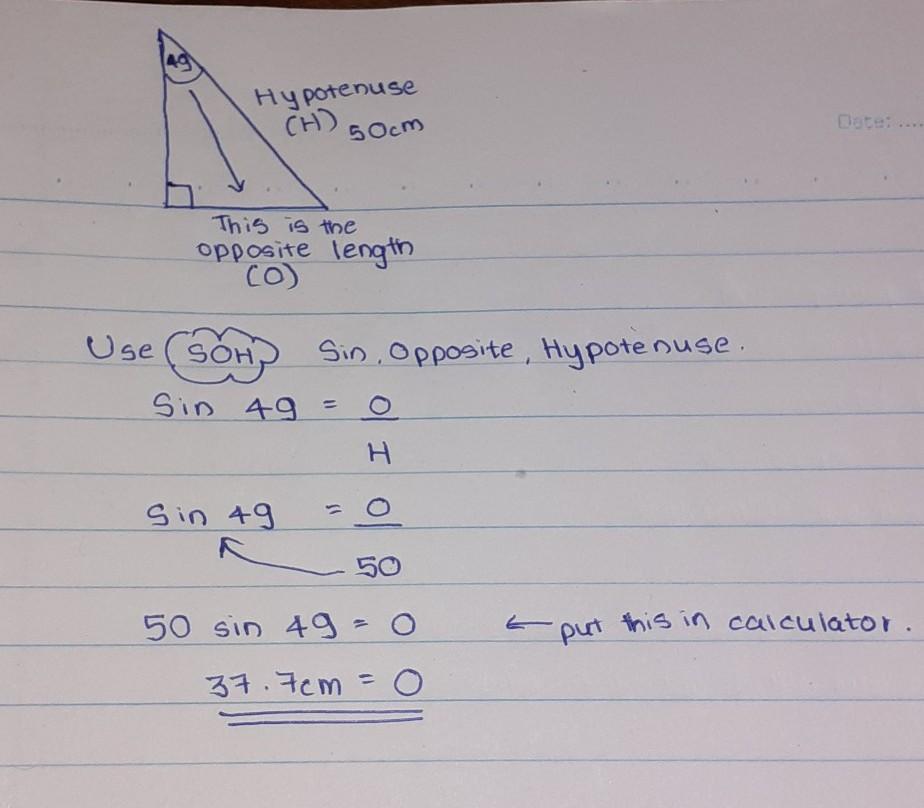 49
Hypotenuse
(H) 50cm
Date: ....
This is the
opposite length
(O)
Use SOH Sin, Opposite, Hypotenuse.
Sin 49 = O
H
Sin 49 = O
50
50 sin 49 = O ← put this in calculator.
37.7cm = O